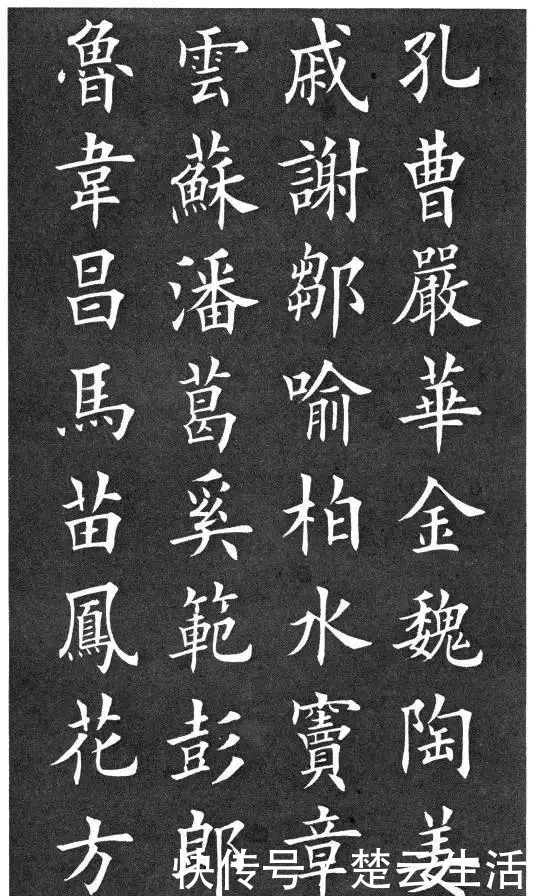 孔曹嚴華金魏陶姜
戚謝鄒喻柏水竇章
雲蘇潘葛奚範彭郎
魯韋昌馬苗鳳花方
快传号 楚云生活